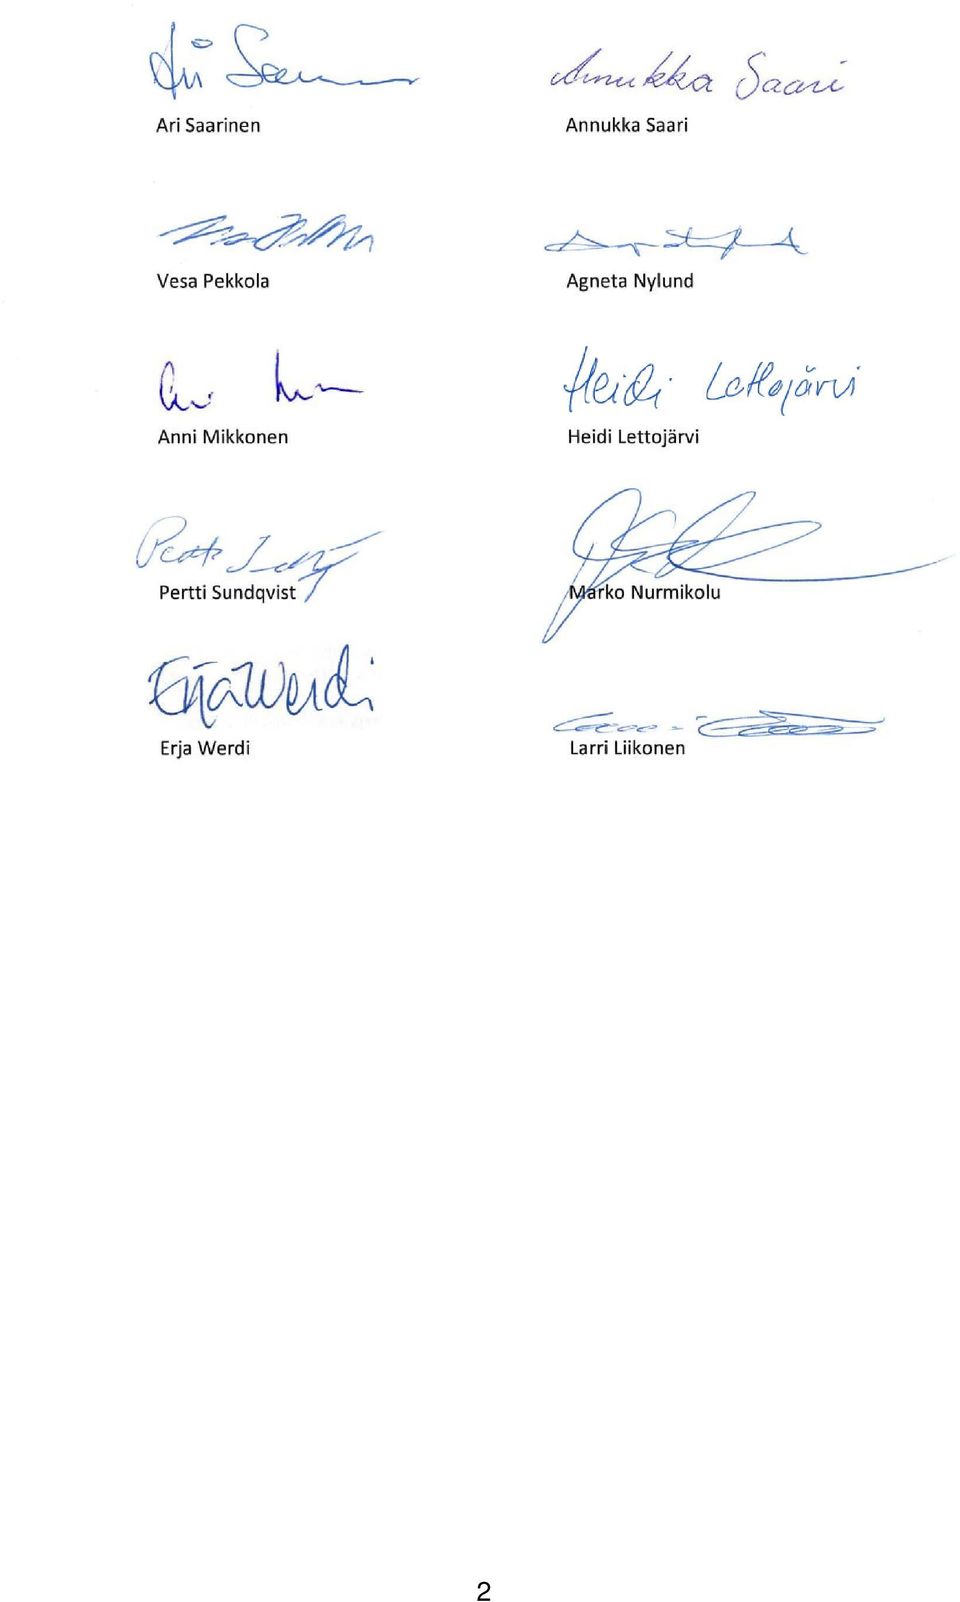 Ari Saarinen
Annukka Saari
Annukka Saari
Vesa Pekkola
Agneta Nylund
Heidi Lettojärvi
Anni Mikkonen
Heidi Lettojärvi
Pertti Sundqvist
Marko Nurmikolu
Erja Werdi
Erja Werdi
Larri Liikonen
2